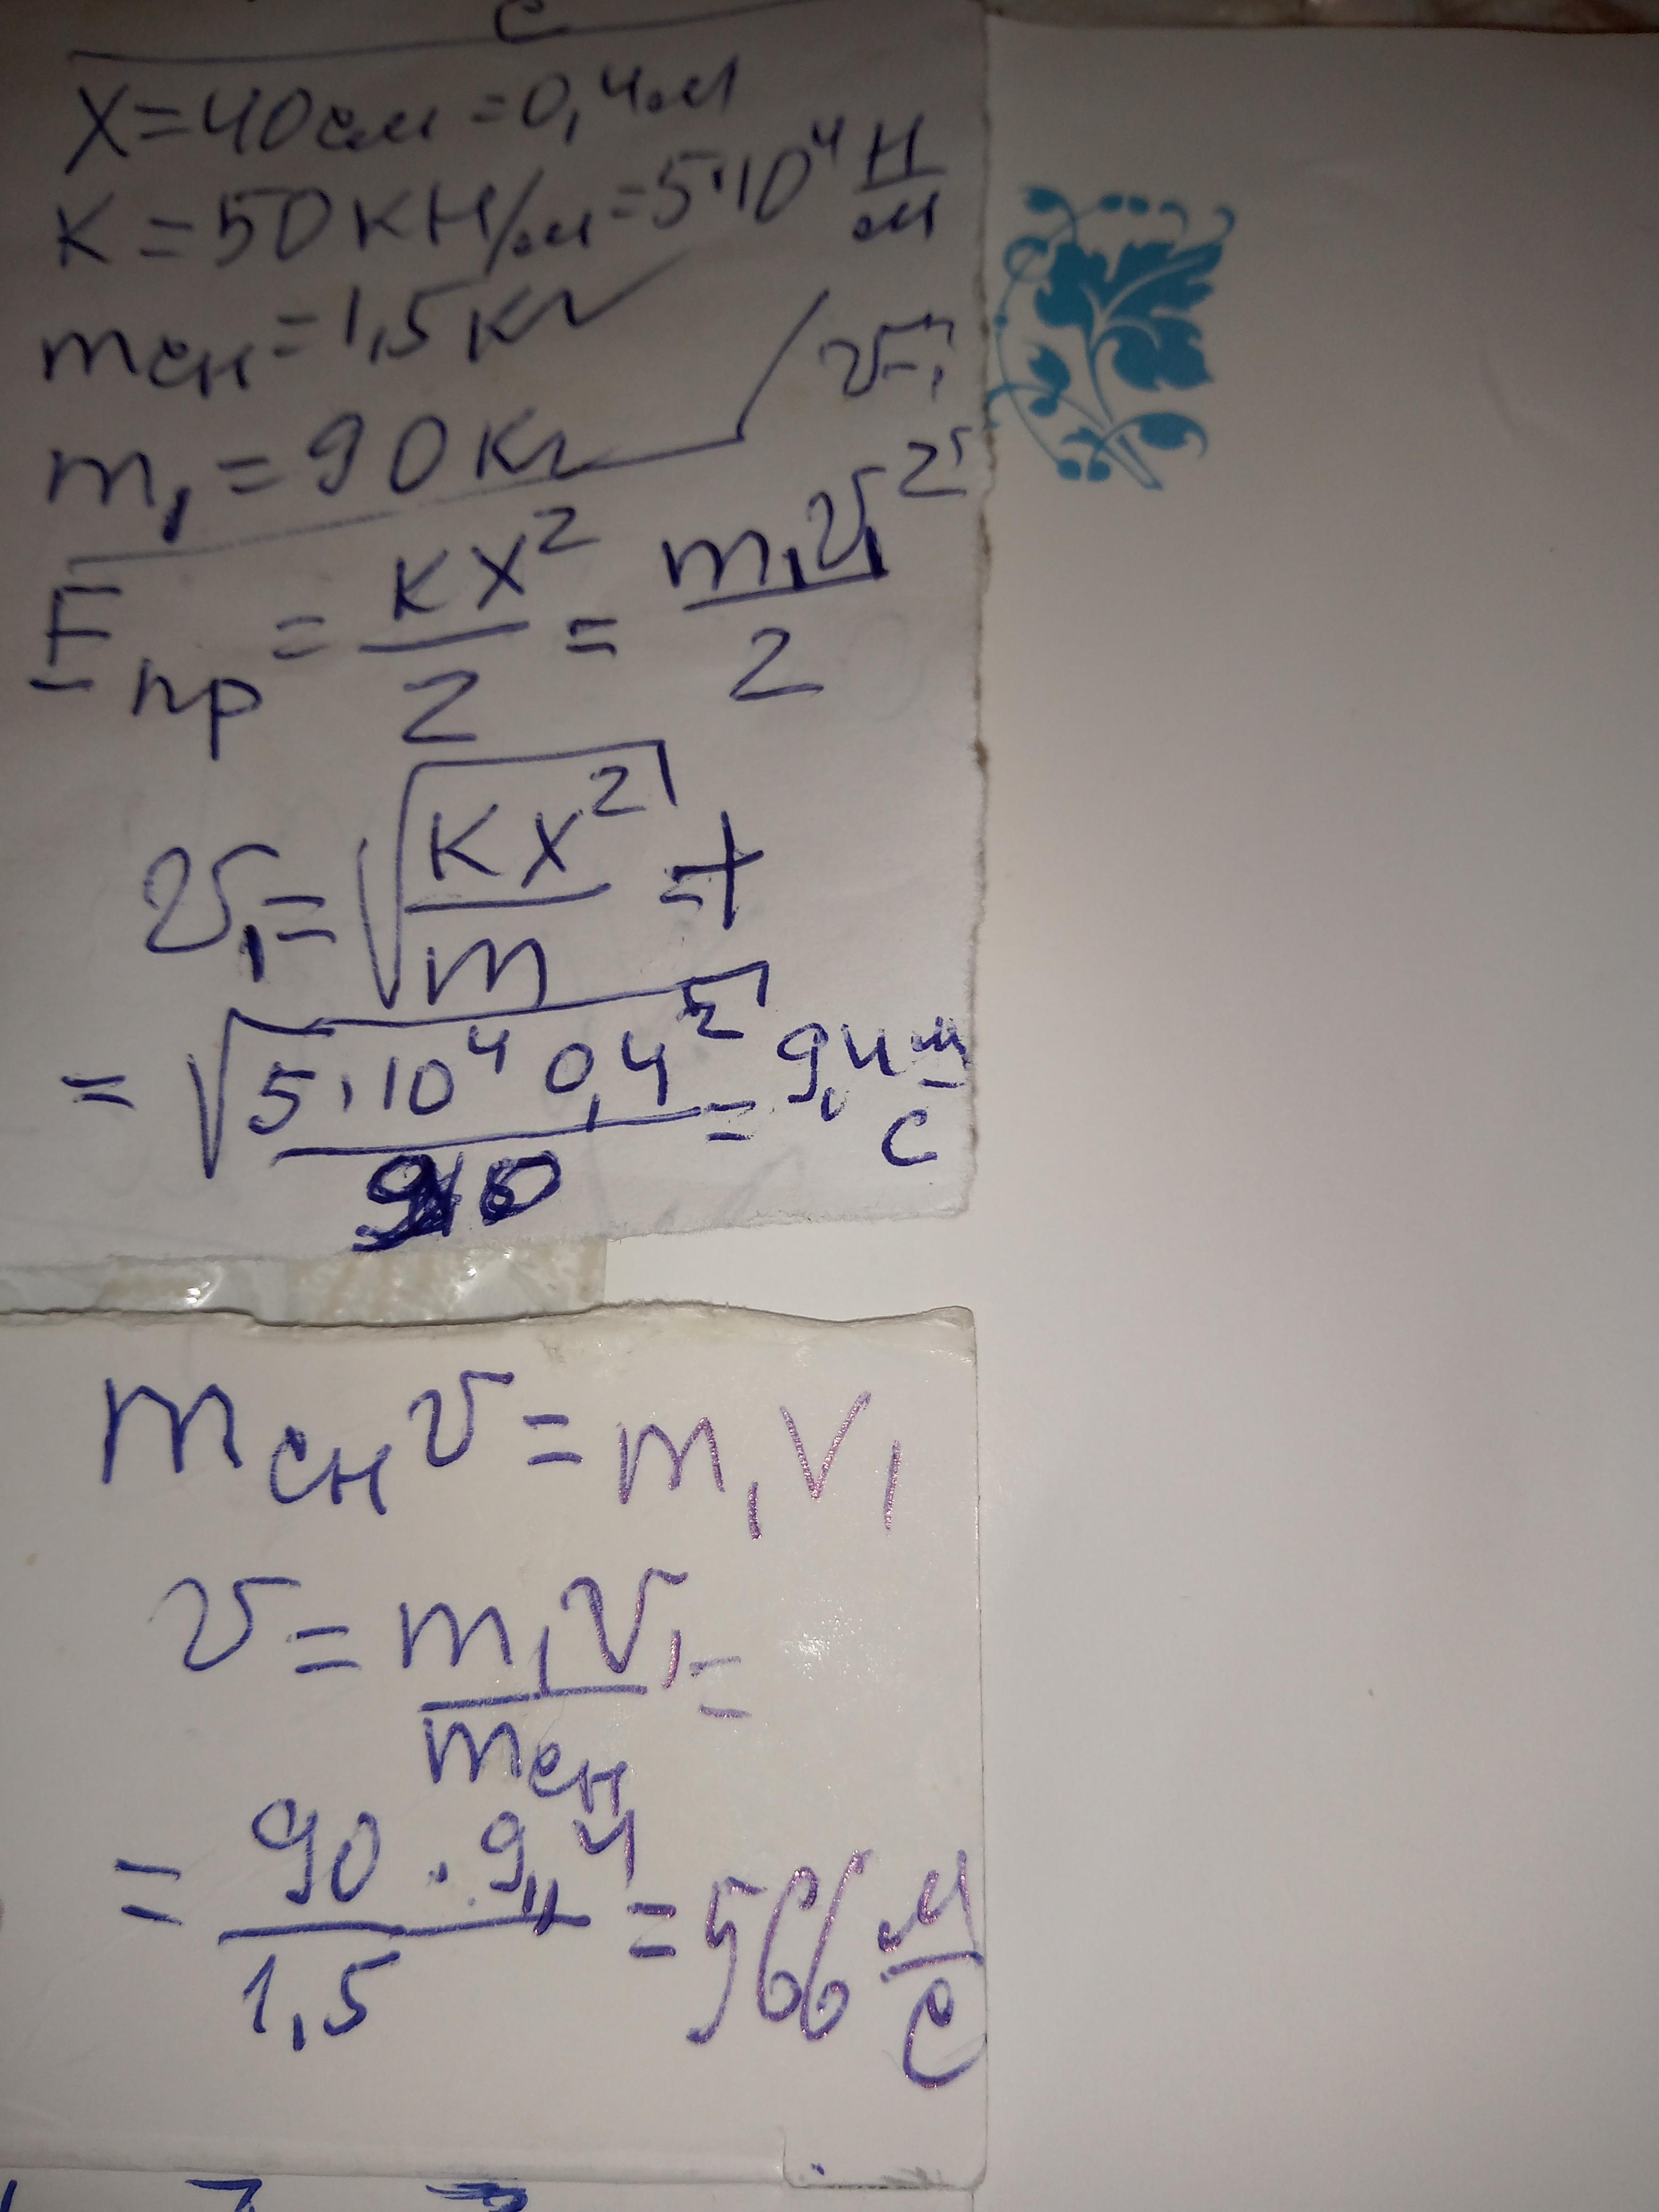 с
x = 40 см = 0,4 м
к = 50 кН/м = 5·10⁴ Н/м
mсн = 1,5 кг
m₁ = 90 кг
v-?
Eпр = кx²/2 = m₁v₁²/2
v₁ = √(кx²/m) =
= √(5·10⁴ 0,4²/90) = 9,4 м/с
mсн v = m₁v₁
v = m₁v₁/mсн =
= 90 · 9,4/1,5 = 566 м/с